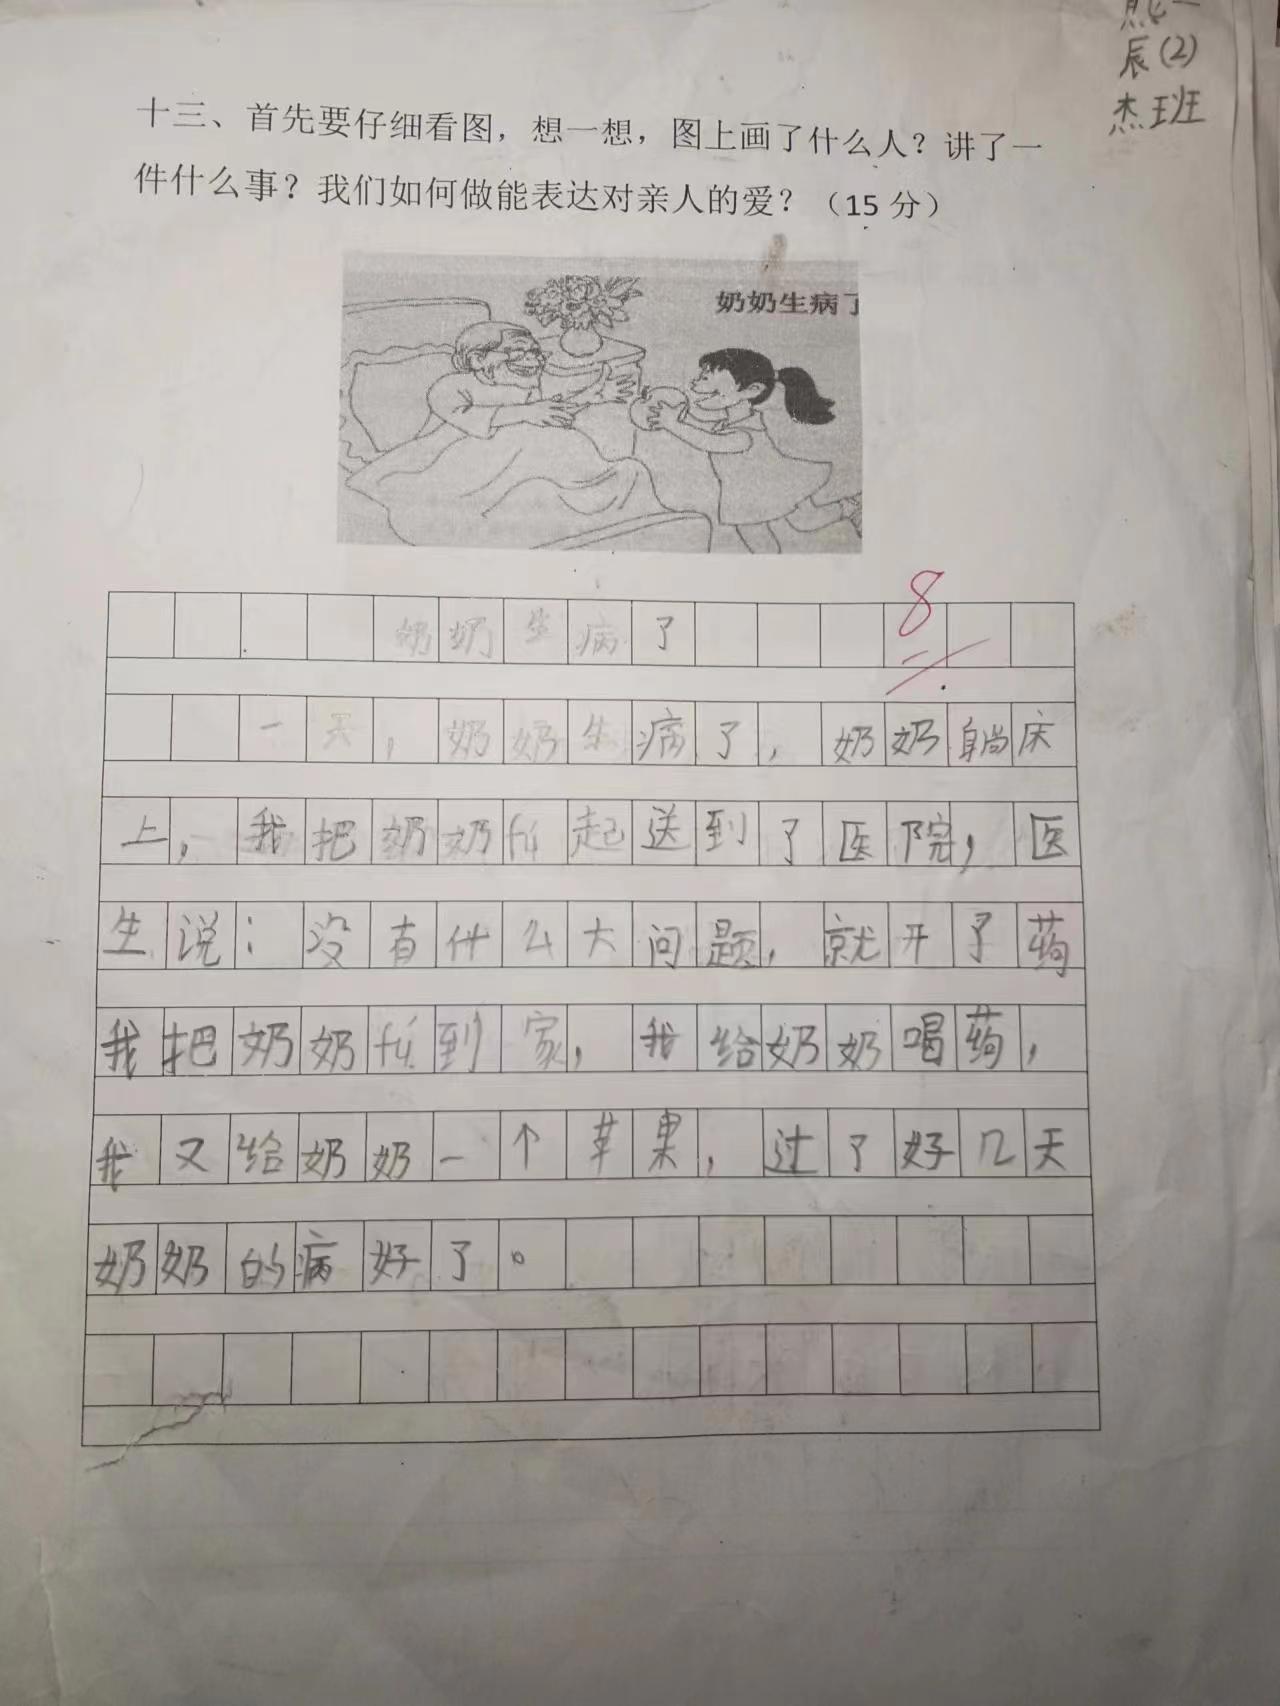 辰(2)
杰 班
十三、首先要仔细看图，想一想，图上画了什么人？讲了一
件什么事？我们如何做能表达对亲人的爱？（15 分）
奶奶生病了
8
奶奶生病了
一天，奶奶生病了，奶奶躺床
上，我把奶奶fú起送到了医院，医
生说：没有什么大问题，就开了药
我把奶奶fú到家，我给奶奶喝药，
我又给奶奶一个苹果，过了好几天
奶奶的病好了。